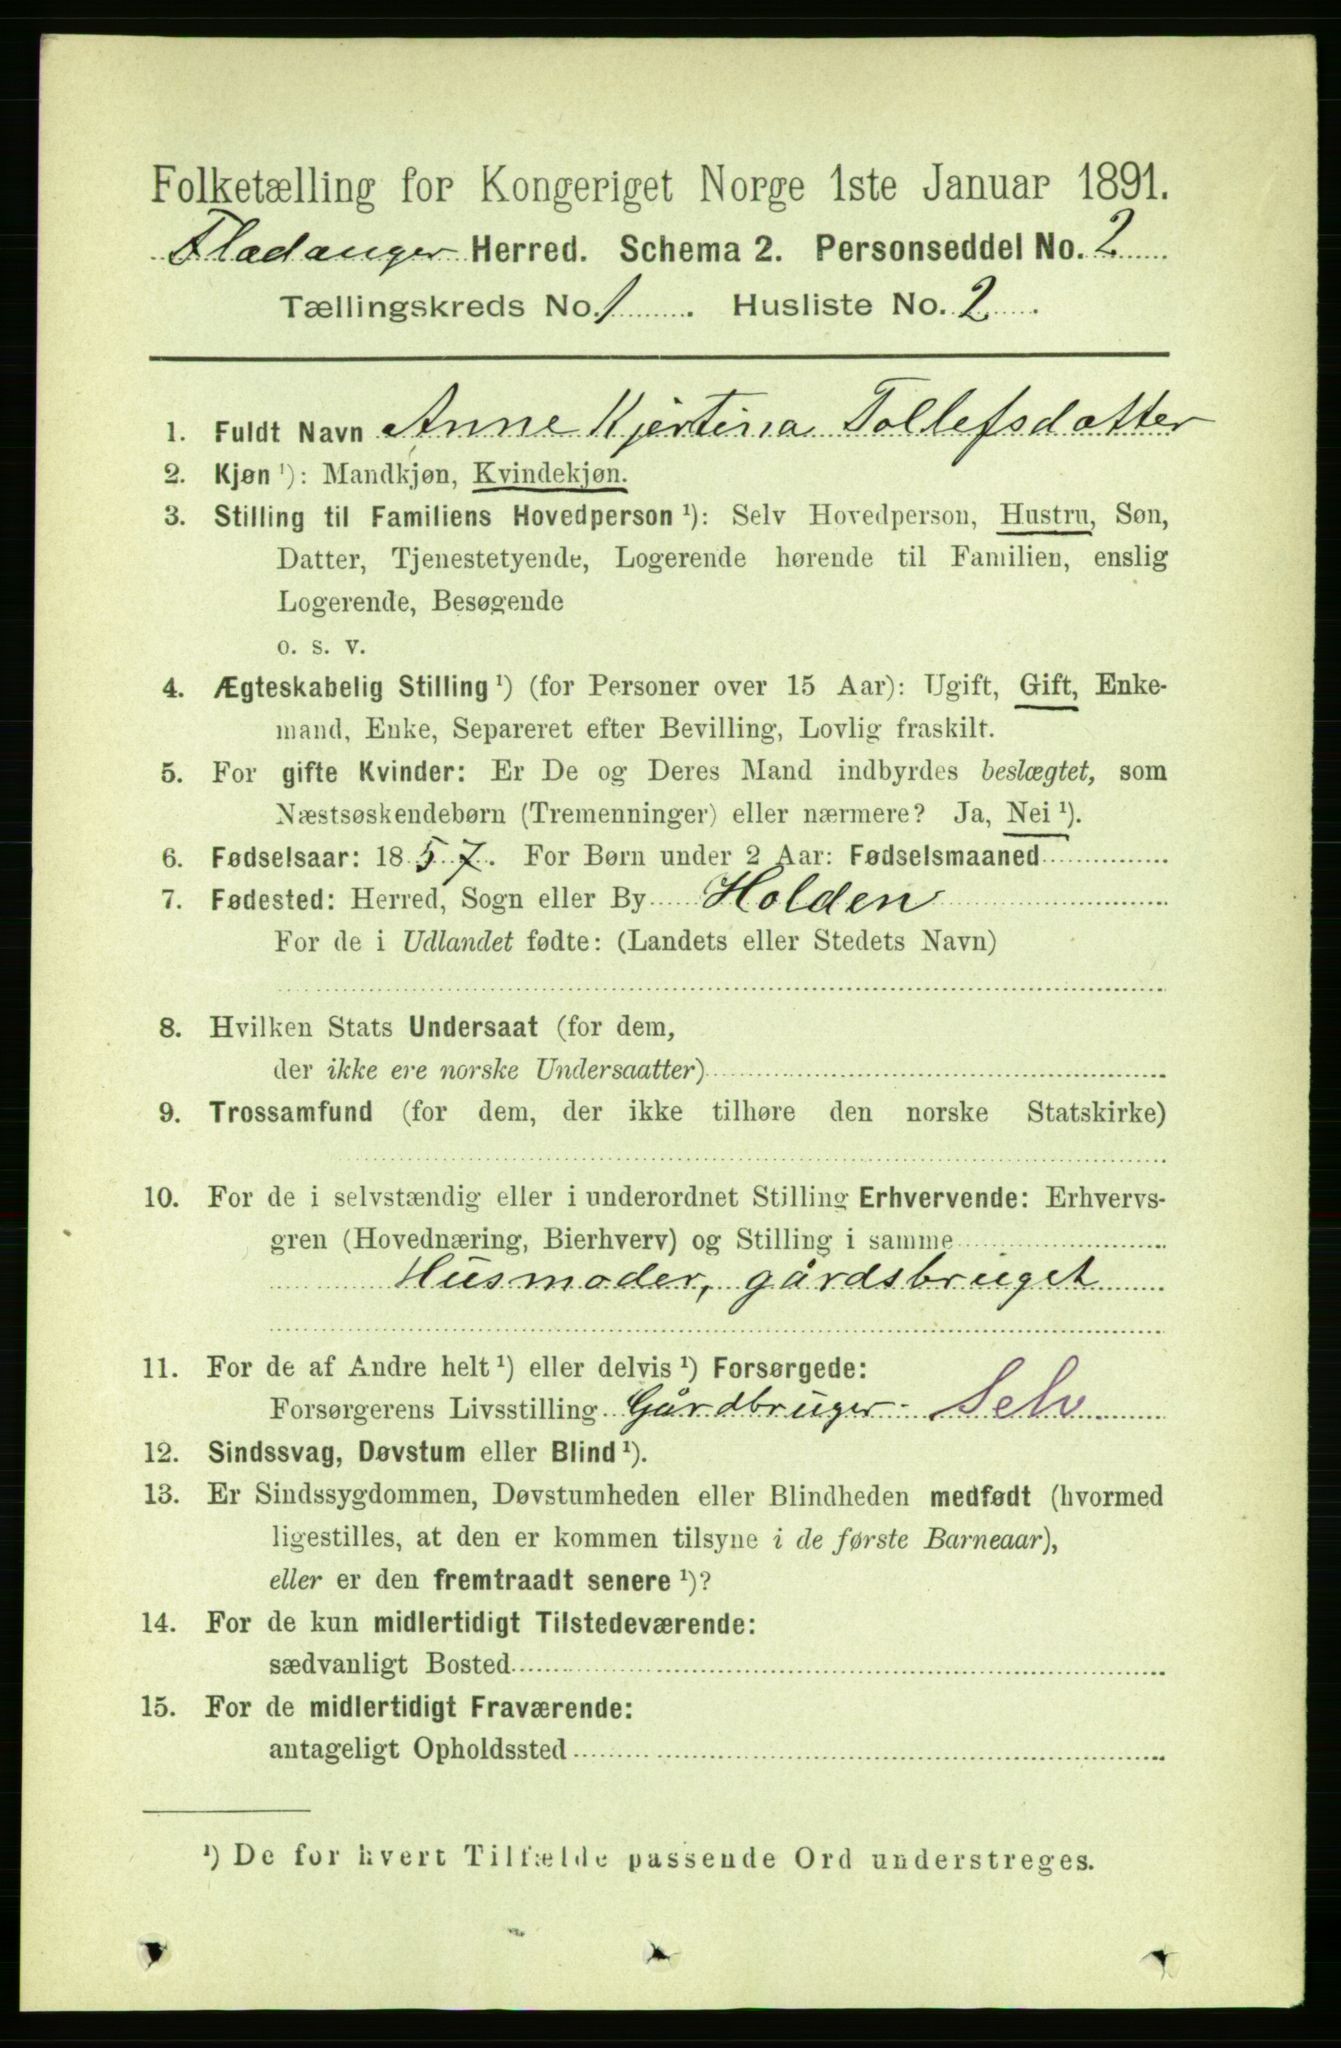 Folketælling for Kongeriget Norge 1ste Januar 1891.
Fladanger Herred. Schema 2. Personseddel No. 2
Tællingskreds No. 1. Husliste No. 2.
1. Fuldt Navn Anne Kjertina Tollefsdatter
2. Kjøn ¹): Mandkjøn, Kvindekjøn.
3. Stilling til Familiens Hovedperson ¹): Selv Hovedperson, Hustru, Søn,
Datter, Tjenestetyende, Logerende hørende til Familien, enslig
Logerende, Besøgende
o. s. v.
4. Ægteskabelig Stilling ¹) (for Personer over 15 Aar): Ugift, Gift, Enke-
mand, Enke, Separeret efter Bevilling, Lovlig fraskilt.
5. For gifte Kvinder: Er De og Deres Mand indbyrdes beslægtet, som
Næstsøskendebørn (Tremenninger) eller nærmere? Ja, Nei ¹).
6. Fødselsaar: 1857. For Børn under 2 Aar: Fødselsmaaned
7. Fødested: Herred, Sogn eller By Holden
For de i Udlandet fødte: (Landets eller Stedets Navn)
8. Hvilken Stats Undersaat (for dem,
der ikke ere norske Undersaatter)
9. Trossamfund (for dem, der ikke tilhøre den norske Statskirke)
10. For de i selvstændig eller i underordnet Stilling Erhvervende: Erhvervs-
gren (Hovednæring, Bierhverv) og Stilling i samme
Husmoder, gårdsbruget
11. For de af Andre helt ¹) eller delvis ¹) Forsørgede:
Forsørgerens Livsstilling Gårdbruger - Selv.
12. Sindssvag, Døvstum eller Blind ¹).
13. Er Sindssygdommen, Døvstumheden eller Blindheden medfødt (hvormed
ligestilles, at den er kommen tilsyne i de første Barneaar),
eller er den fremtraadt senere ¹)?
14. For de kun midlertidigt Tilstedeværende:
sædvanligt Bosted
15. For de midlertidigt Fraværende:
antageligt Opholdssted
¹) De for hvert Tilfælde passende Ord understreges.